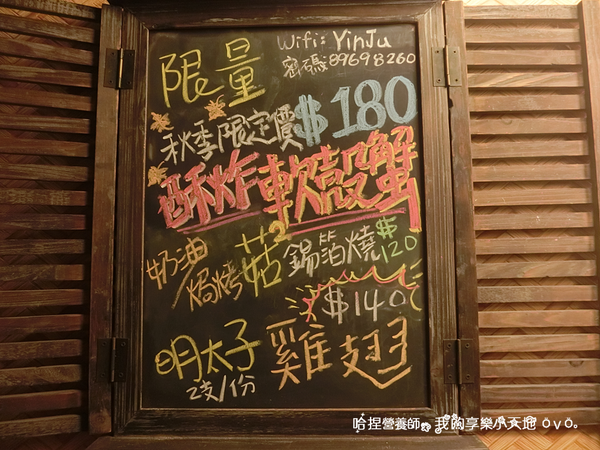 限量
Wifi: YinJu
密碼:89698260
秋季限定價$180
酥炸軟殼蟹
奶油焗烤菇錫箔燒$120
$140
明太子雞翅
2支/份
哈捏營養師。我的享樂小天地 ovo。